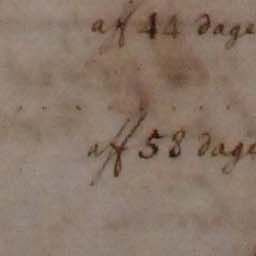 aff 44 dage
aff 58 dage